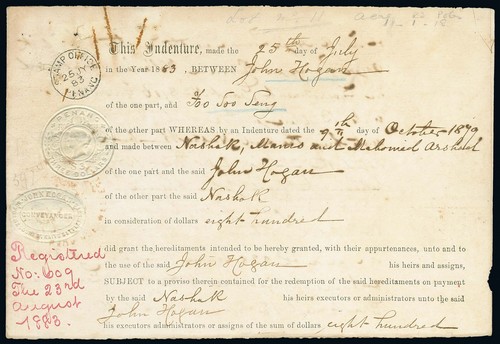 This Indenture, made the 25th day of July
in the Year 1883, BETWEEN John Hogan
of the one part, and Soo Teng
of the other part WHEREAS by an Indenture dated the 9th day of October 1879
and made between Nashak, Manis and Mahomed Arshad
of the one part and the said John Hogan
of the other part the said Nashak
in consideration of dollars eight hundred
did grant the hereditaments intended to be hereby granted, with their appurtenances, unto and to
the use of the said John Hogan his heirs and assigns,
SUBJECT to a proviso therein contained for the redemption of the said hereditaments on payment
by the said Nashak his heirs executors or administrators unto the said
John Hogan
his executors administrators or assigns of the sum of dollars eight hundred
STAMP OFFICE
25 JY
83
PENANG
PENANG
Registered
No: 609
The 23rd
August
1883.